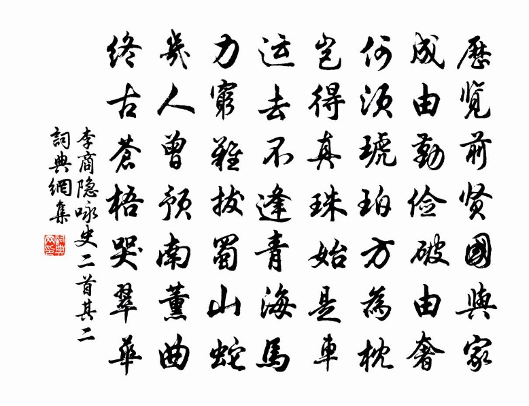 歷览前贤國與家
成由勤俭破由奢
何须琥珀方為枕
岂得真珠始是車
运去不逢青海馬
力窮難拔蜀山蛇
幾人曾预南薰曲
终古蒼梧哭翠華
李商隐咏史二首其二
詞典網集